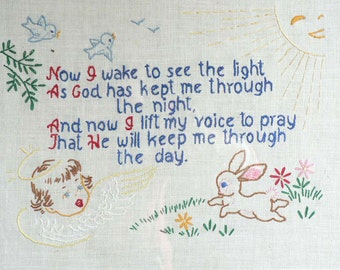 Now I wake to see the light
As God has kept me through
the night,
And now I lift my voice to pray
That He will keep me through
the day.